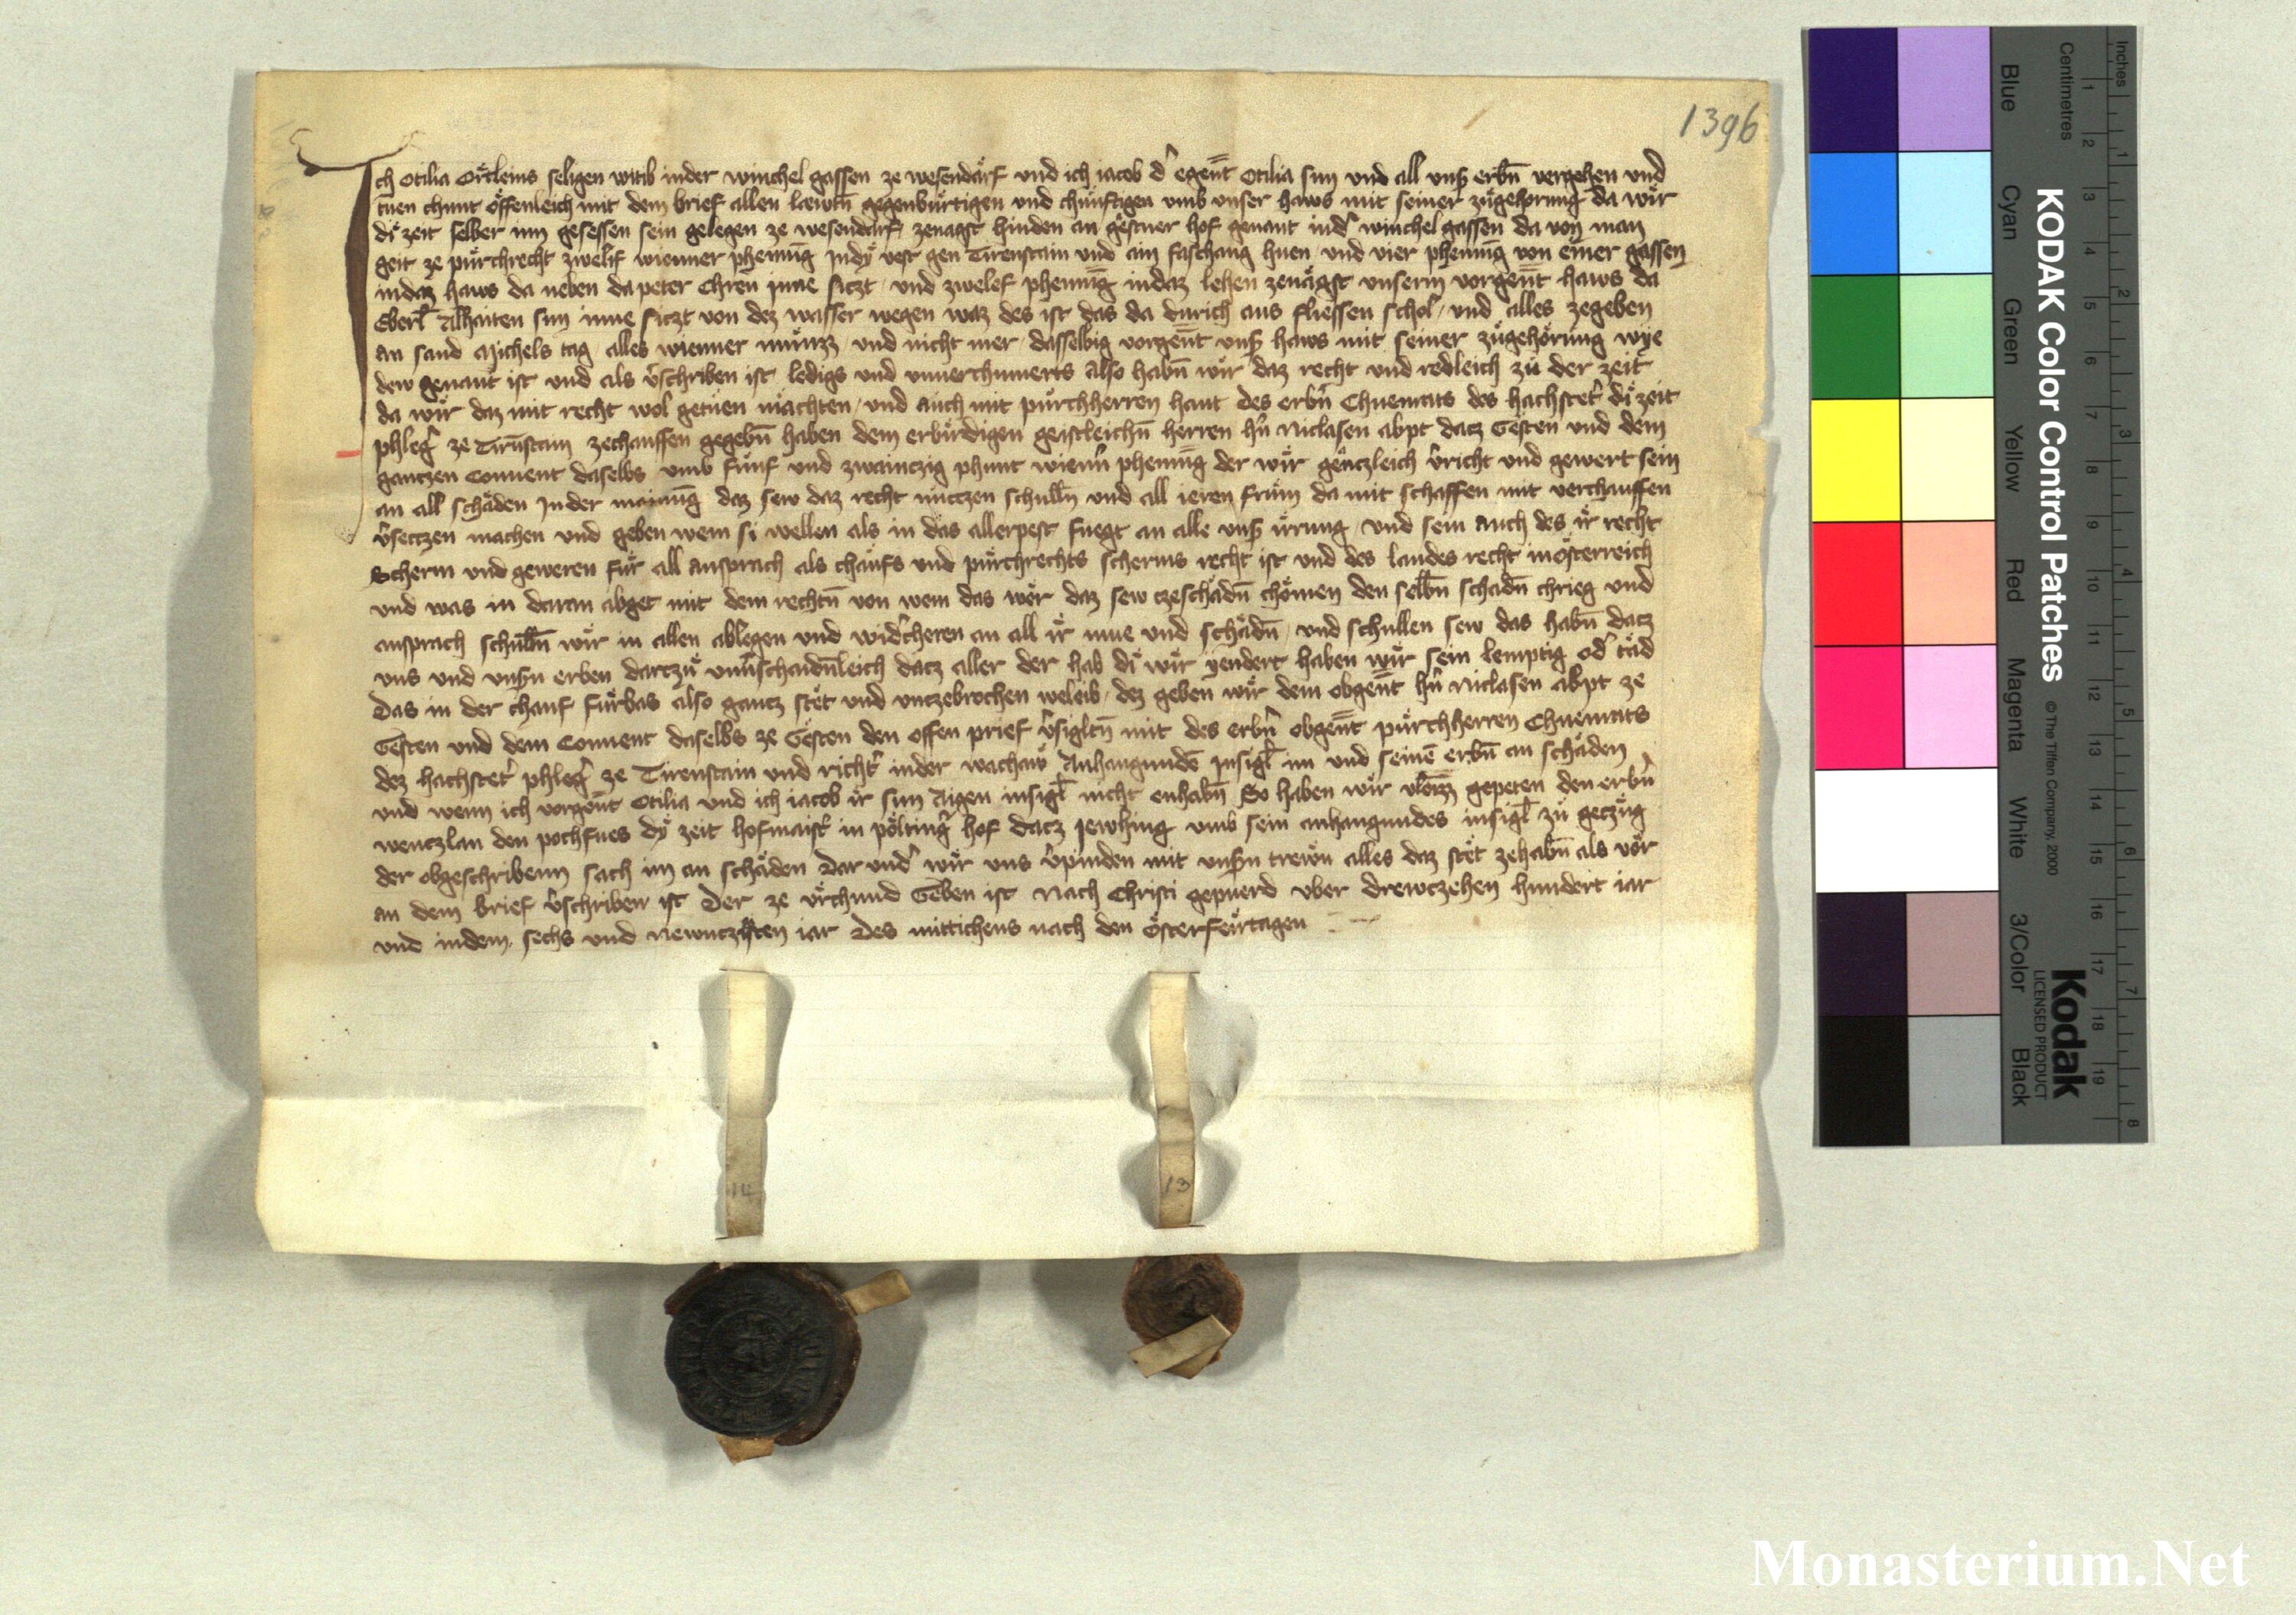 1396
Ich Otilia Örtleins seligen witib inder winchel gassen ze wesendårf und ich iacob d' egen̄t Otilia sun und all uns' erbn̄ vergehen und
tuen chunt offenleich mit dem brief allen læwtn̄ gegenbürtigen und chünftigen umb unser haws mit seiner zugehorung da wir
di zeit selber inn gesessen sein gelegen ze wesendarf zenagst hinden an gestner hof genant ind' winchel gassen da von man
geit ze purchrecht zwelif wienner phenning indy vest gen Tirenstain und ain faschang huen und vier phenning von einer gassen
indaz haws da neben da peter Chren inne siczt und zwelef phenning indaz lehen zenagst unserm vorgen̄t haws da
Eberl Alhaiten sun inne siczt von dez wasser wegen waz des ist das da durich aus fliessen schol und alles zegeben
an sand Michels tag alles wienner münzz und nicht mer dasselbig vorgen̄t uns' haws mit seiner zugehörung wye
dew genant ist und als v'schriben ist ledigs und unuerchumerts also habn̄ wir daz recht und redleich zu der zeit
da wir daz mit recht wol getuen machten und auch mit purchherren hant des erbn̄ Chuenrats des hachstet' di zeit
phleg' ze Tirnstain zechauffen gegebn̄ haben dem erbirdigen geistleichn̄ herren h'n Niclasen abpt datz Gesten und dem
gantzen Conuent daselbs umb fünf und zwainczig phunt wienn' phenning der wir genczleich v'richt und gewert sein
an all schäden Inder mainung daz sew daz recht nüczen schulln̄ und all ieren frum da mit schaffen mit verchauffen
v'seczen machen und geben wem si wellen als in das allerpest fuegt an alle uns' irrung und sein auch des ir recht
Scherm und geweren für all ansprach als chaufs und purchrechts scherms recht ist und des landes recht in osterreich
und was in daran abget mit dem rechtn̄ von wem das wer daz sew czeschadn̄ chömen den selbn̄ schadn̄ chrieg und
ansprach schulln̄ wir in allen ablegen und wid'cheren an all ir mue und schådn̄ und schullen sew das habn̄ datz
uns und uns'n erben dartzu unu'schaidnleich datz aller der hab di wir yendert haben wir sein lemptig od' tåd
Das in der chauf fürbas also gancz stet und unczebrochen weleib dez geben wir dem obgen̄t h'n Niclasen abpt ze
Gesten und dem Conuent daselbs ze Gesten den offen prief v'sigltn̄ mit des erb'n obgen̄t purchherren Chuenrats
dez hachstet' phleg' ze Tirenstain und richt' inder wachaw Anhangunden Insigl im und seinē erbn̄ an schäden
und wenn ich vorgen̄t Otilia und ich iacob ir sun Aigen insigl nicht enhabn̄ So haben wir gepeten den erb'n
wenczlan den pochfues dy zeit hofmaist' in pölting' hof datz Jewhing umb sein anhangundes insigl zu geczüg
der obgeschribenn sach im an schäden Dar und' wir uns v'pinden mit uns'n trewn alles daz stet zehabn̄ als vor
an dem brief v'schriben ist Der ze urchund Geben ist Nach Christi gepuerd uber drewczehen hundert iar
und indem sechs und Newnczkisten iar Des mittichens nach den österfeirtagen
14
13
KODAK Color Control Patches © The Tiffen Company, 2000
Kodak
LICENSED PRODUCT
Inches 1 2 3 4 5 6 7 8
Centimetres 1 2 3 4 5 6 7 8 9 10 11 12 13 14 15 16 17 18 19
Blue Cyan Green Yellow Red Magenta White 3/Color Black
Monasterium.Net